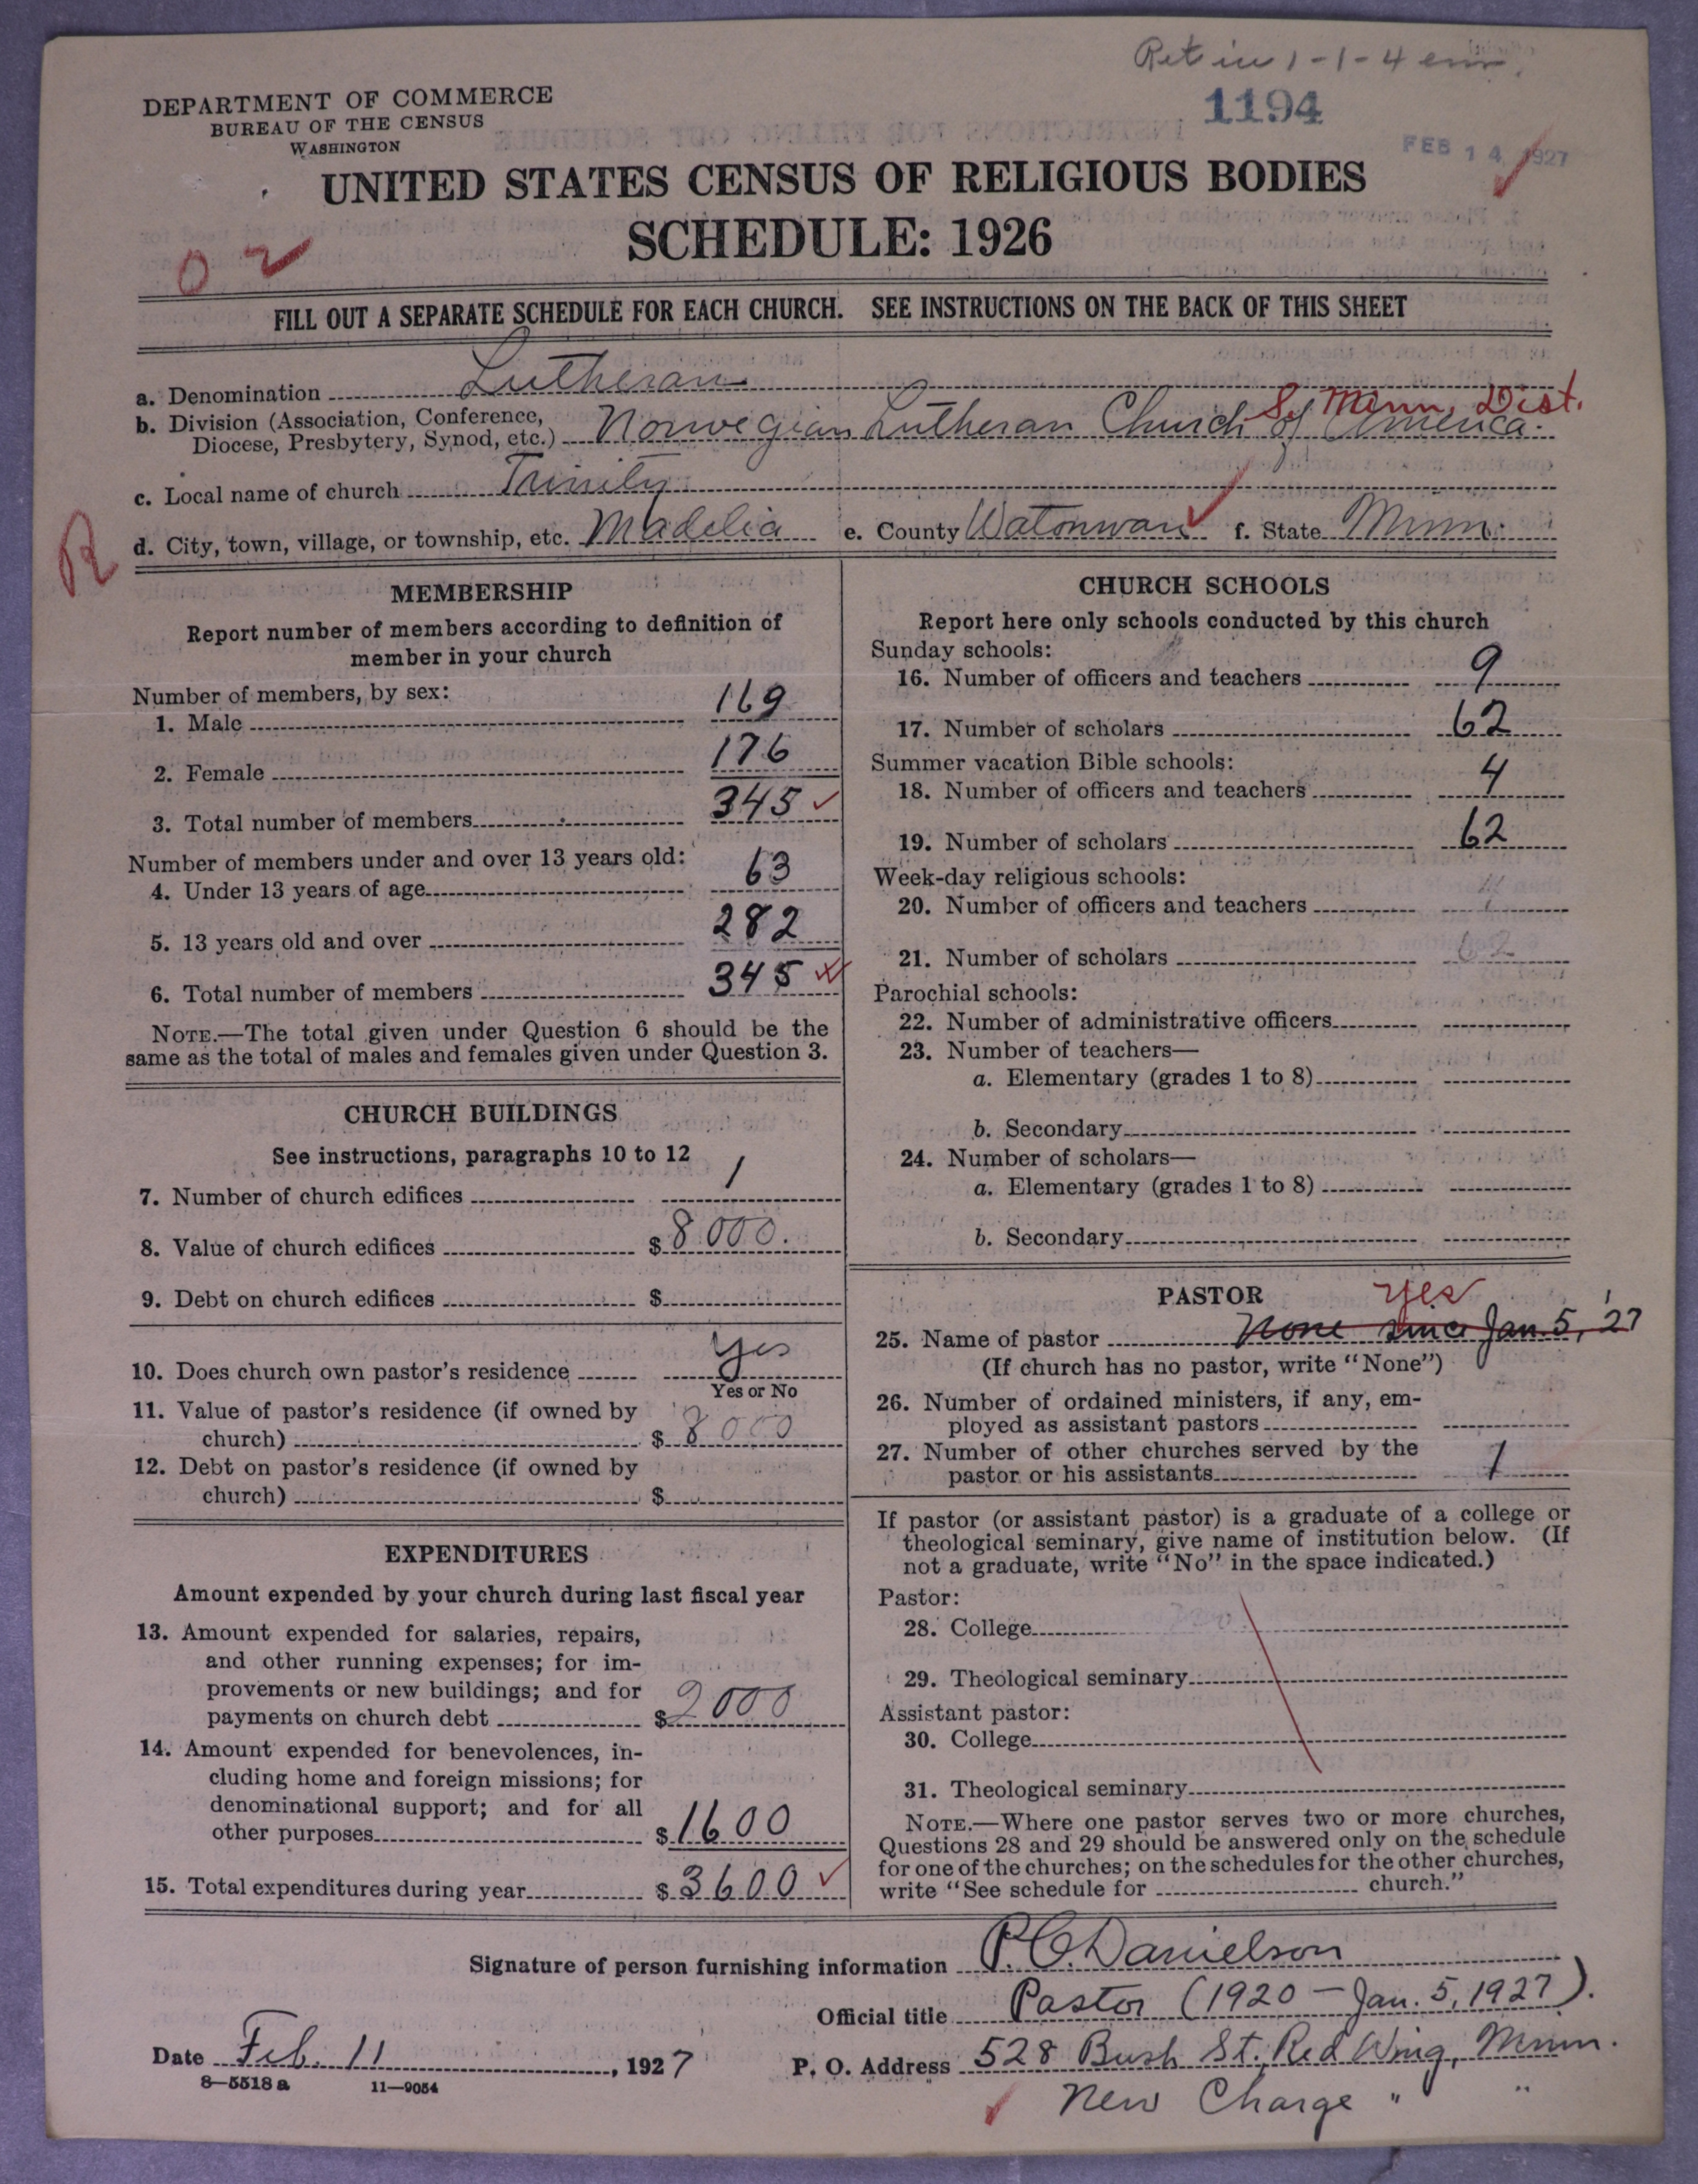 Ret in 1-1-4
DEPARTMENT OF COMMERCE
BUREAU OF THE CENSUS
WASHINGTON
1194
FEB 14 1927
UNITED STATES CENSUS OF RELIGIOUS BODIES
SCHEDULE: 1926
02
FILL OUT A SEPARATE SCHEDULE FOR EACH CHURCH. SEE INSTRUCTIONS ON THE BACK OF THIS SHEET
a. Denomination Lutheran
So Minn. Dist.
b. Division (Association, Conference,
Diocese, Presbytery, Synod, etc.) Norwegian Lutheran Church of America.
c. Local name of church Trinity
R
d. City, town, village, or township, etc. Madelia e. County Watonwan f. State Minn.
MEMBERSHIP
Report number of members according to definition of
member in your church
Number of members, by sex:
1. Male 169
2. Female 176
3. Total number of members 345
Number of members under and over 13 years old:
4. Under 13 years of age 63
5. 13 years old and over 282
6. Total number of members 345
NOTE.—The total given under Question 6 should be the
same as the total of males and females given under Question 3.
CHURCH BUILDINGS
See instructions, paragraphs 10 to 12
7. Number of church edifices 1
8. Value of church edifices $8000.
9. Debt on church edifices $
10. Does church own pastor's residence Yes
Yes or No
11. Value of pastor's residence (if owned by
church) $8000
12. Debt on pastor's residence (if owned by
church) $
EXPENDITURES
Amount expended by your church during last fiscal year
13. Amount expended for salaries, repairs,
and other running expenses; for im-
provements or new buildings; and for
payments on church debt $2000
14. Amount expended for benevolences, in-
cluding home and foreign missions; for
denominational support; and for all
other purposes $1600
15. Total expenditures during year $3600
CHURCH SCHOOLS
Report here only schools conducted by this church
Sunday schools:
16. Number of officers and teachers 9
17. Number of scholars 62
Summer vacation Bible schools:
18. Number of officers and teachers 4
19. Number of scholars 62
Week-day religious schools:
20. Number of officers and teachers
21. Number of scholars 62
Parochial schools:
22. Number of administrative officers
23. Number of teachers—
a. Elementary (grades 1 to 8)
b. Secondary
24. Number of scholars—
a. Elementary (grades 1 to 8)
b. Secondary
PASTOR
yes
25. Name of pastor None since Jan. 5, '27
(If church has no pastor, write "None")
26. Number of ordained ministers, if any, em-
ployed as assistant pastors
27. Number of other churches served by the
pastor or his assistants 1
If pastor (or assistant pastor) is a graduate of a college or
theological seminary, give name of institution below. (If
not a graduate, write "No" in the space indicated.)
Pastor:
28. College
29. Theological seminary
Assistant pastor:
30. College
31. Theological seminary
NOTE.—Where one pastor serves two or more churches,
Questions 28 and 29 should be answered only on the schedule
for one of the churches; on the schedules for the other churches,
write "See schedule for church."
Signature of person furnishing information P. C. Danielson
Official title Pastor (1920 - Jan. 5, 1927).
Date Feb. 11, 1927 P. O. Address 528 Bush St. Red Wing, Minn.
8-5518 a 11-9054
New Charge " "